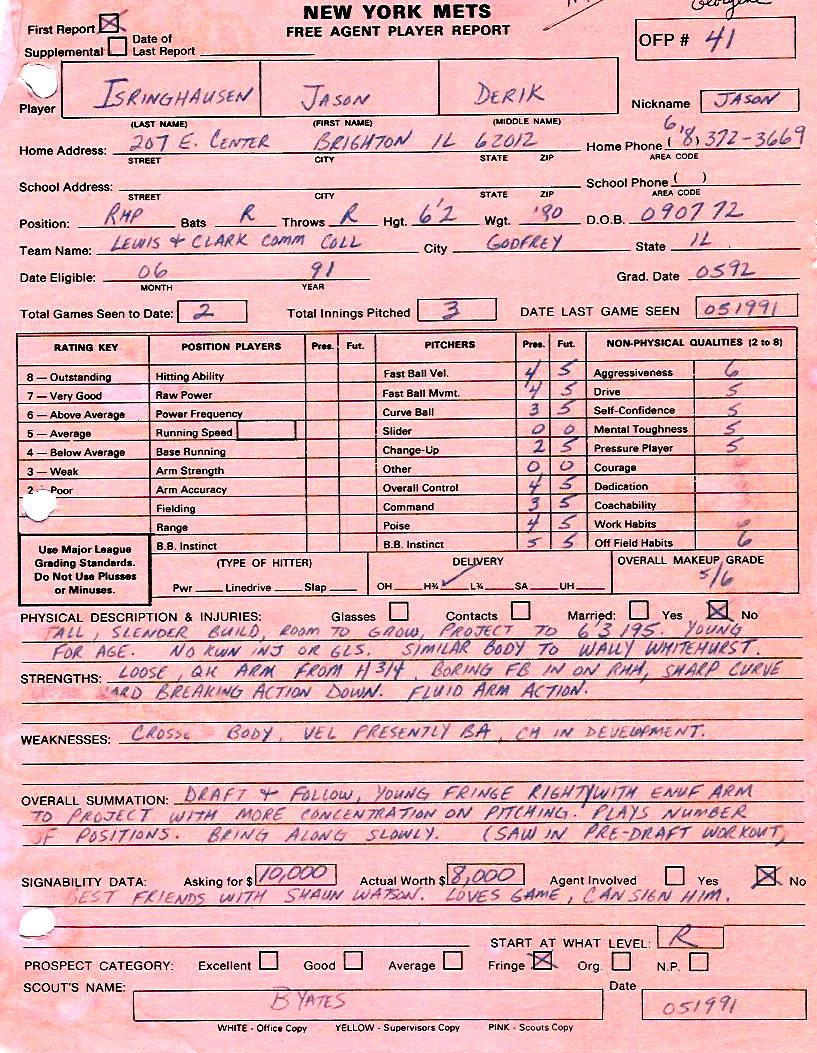 NEW YORK METS
FREE AGENT PLAYER REPORT
First Report ☒
Supplemental ☐ Date of Last Report
OFP # 41
Player ISRINGHAUSEN JASON DERIK Nickname JASON
(LAST NAME) (FIRST NAME) (MIDDLE NAME)
Home Address: 207 E. CENTER BRIGHTON IL 62012 Home Phone (618) 372-3669
STREET CITY STATE ZIP AREA CODE
School Address: School Phone ( )
STREET CITY STATE ZIP AREA CODE
Position: RHP Bats R Throws R Hgt. 6'2 Wgt. 180 D.O.B. 090772
Team Name: LEWIS & CLARK COMM COLL City GODFREY State IL
Date Eligible: 06 91 Grad. Date 0592
MONTH YEAR
Total Games Seen to Date: 2 Total Innings Pitched 3 DATE LAST GAME SEEN 051991
RATING KEY POSITION PLAYERS Pres. Fut. PITCHERS Pres. Fut. NON-PHYSICAL QUALITIES (2 to 8)
8 — Outstanding Hitting Ability Fast Ball Vel. 4 5 Aggressiveness 6
7 — Very Good Raw Power Fast Ball Mvmt. 4 5 Drive 5
6 — Above Average Power Frequency Curve Ball 3 5 Self-Confidence 5
5 — Average Running Speed Slider 0 0 Mental Toughness 5
4 — Below Average Base Running Change-Up 2 5 Pressure Player 5
3 — Weak Arm Strength Other 0 0 Courage
2 — Poor Arm Accuracy Overall Control 4 5 Dedication
Fielding Command 3 5 Coachability
Range Poise 4 5 Work Habits
B.B. Instinct B.B. Instinct 5 5 Off Field Habits 6
Use Major League Grading Standards. Do Not Use Plusses or Minuses.
(TYPE OF HITTER) DELIVERY OVERALL MAKEUP GRADE
Pwr Linedrive Slap OH H¾ ✓ L¾ SA UH 5/6
PHYSICAL DESCRIPTION & INJURIES: Glasses ☐ Contacts ☐ Married: ☐ Yes ☒ No
TALL, SLENDER BUILD, ROOM TO GROW, PROJECT TO 6'3 195. YOUNG
FOR AGE. NO KWN INJ OR GLS. SIMILAR BODY TO WALLY WHITEHURST.
STRENGTHS: LOOSE, QK ARM FROM H3/4, BORING FB IN ON RHH, SHARP CURVE
BREAKING ACTION DOWN. FLUID ARM ACTION.
WEAKNESSES: CROSSE BODY, VEL PRESENTLY BA, CH IN DEVELOPMENT.
OVERALL SUMMATION: DRAFT & FOLLOW, YOUNG FRINGE RIGHTY WITH ENUF ARM
TO PROJECT WITH MORE CONCENTRATION ON PITCHING. PLAYS NUMBER
OF POSITIONS. BRING ALONG SLOWLY. (SAW IN PRE-DRAFT WORKOUT)
SIGNABILITY DATA: Asking for $ 10,000 Actual Worth $ 8,000 Agent Involved ☐ Yes ☒ No
BEST FRIENDS WITH SHAUN WATSON. LOVES GAME, CAN SIGN HIM.
START AT WHAT LEVEL: R
PROSPECT CATEGORY: Excellent ☐ Good ☐ Average ☐ Fringe ☒ Org. ☐ N.P. ☐
SCOUT'S NAME: B YATES Date 051991
WHITE - Office Copy YELLOW - Supervisors Copy PINK - Scouts Copy